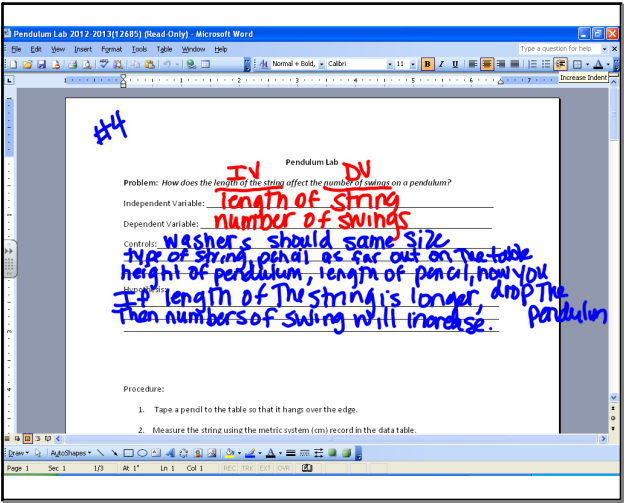 Pendulum Lab 2012-2013(12685) (Read-Only) - Microsoft Word
File Edit View Insert Format Tools Table Window Help
Type a question for help
Normal + Bold, Calibri 11 B I U
Increase Indent
#4
Pendulum Lab
IV DV
Problem: How does the length of the string affect the number of swings on a pendulum?
Independent Variable: length of string
Dependent Variable: number of swings
Controls: washers should same size
type of string, pencil as far out on the table
height of pendulum, length of pencil, how you
drop the
pendulum
Hypothesis:
If length of the string is longer,
then numbers of swing will increase.
Procedure:
1. Tape a pencil to the table so that it hangs over the edge.
2. Measure the string using the metric system (cm) record in the data table.
Draw AutoShapes
Page 1 Sec 1 1/3 At 1" Ln 1 Col 1 REC TRK EXT OVR